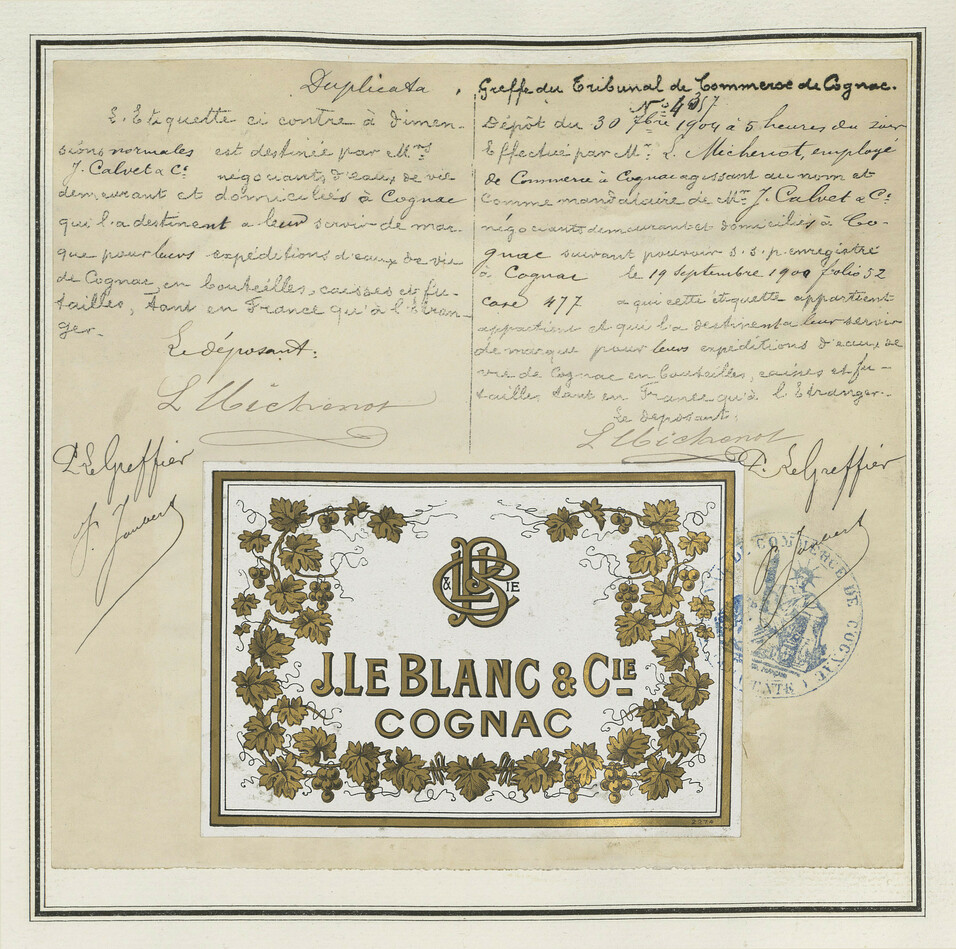 Duplicata
L'Etiquette ci contre à dimen-
sions normales est destinée par Mrs
J. Calvet & Co négociants, d'eaux de vie
demeurant et domiciliés à Cognac
qui l'a destinent a leur servir de mar-
que pour leurs expéditions d'eaux de vie
de Cognac, en bouteilles, caisses et fu-
tailles, tant en France qu'à l'étran-
ger.
Le déposant:
L Michenot
P. Le Greffier
Greffe du Tribunal de Commerce de Cognac.
Dépôt du 30 7bre 1904 à 5 heures du soir
Effectué par Mr. L. Michenot, employé
de Commerce à Cognac agissant au nom et
comme mandataire de Mrs J. Calvet & Co
négociants demeurant et domiciliés à Co-
gnac suivant pouvoir s.s.p. enregistré
à Cognac le 19 septembre 1900 folio 52
case 477 a qui cette étiquette appartient
appartient et qui l'a destinent a leur servir
de marque pour leurs expéditions d'eaux de
vie de Cognac en bouteilles, caisses et fu-
tailles tant en France qu'à l'Etranger.
Le deposant:
L Michenot
P. Le Greffier
& LB CIE
J. LE BLANC & CIE
COGNAC
COMMERCE DE COGNAC